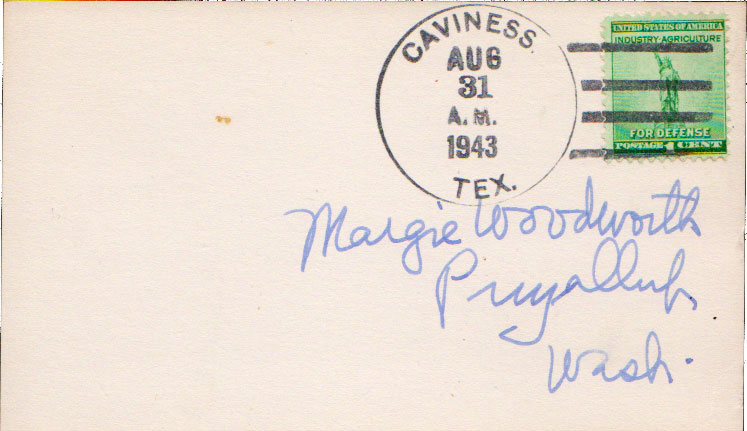 CAVINESS.
AUG
31
A.M.
1943
TEX.
UNITED STATES OF AMERICA
INDUSTRY·AGRICULTURE
FOR DEFENSE
POSTAGE 1 CENT
Margie Woodworth
Puyallup,
Wash.